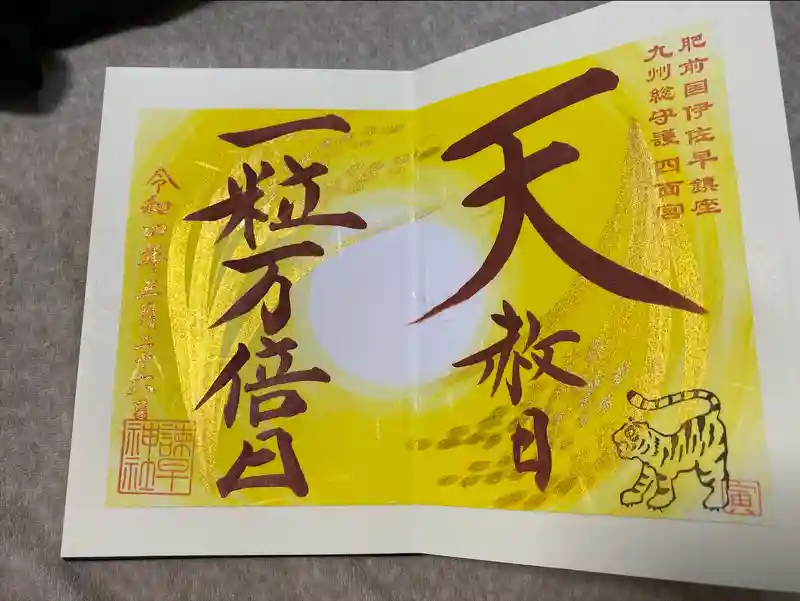 肥前国伊佐早鎮座
九州総守護 四面宮
天赦日
寅
一粒万倍日
令和四年三月二十六日
諫早
神社